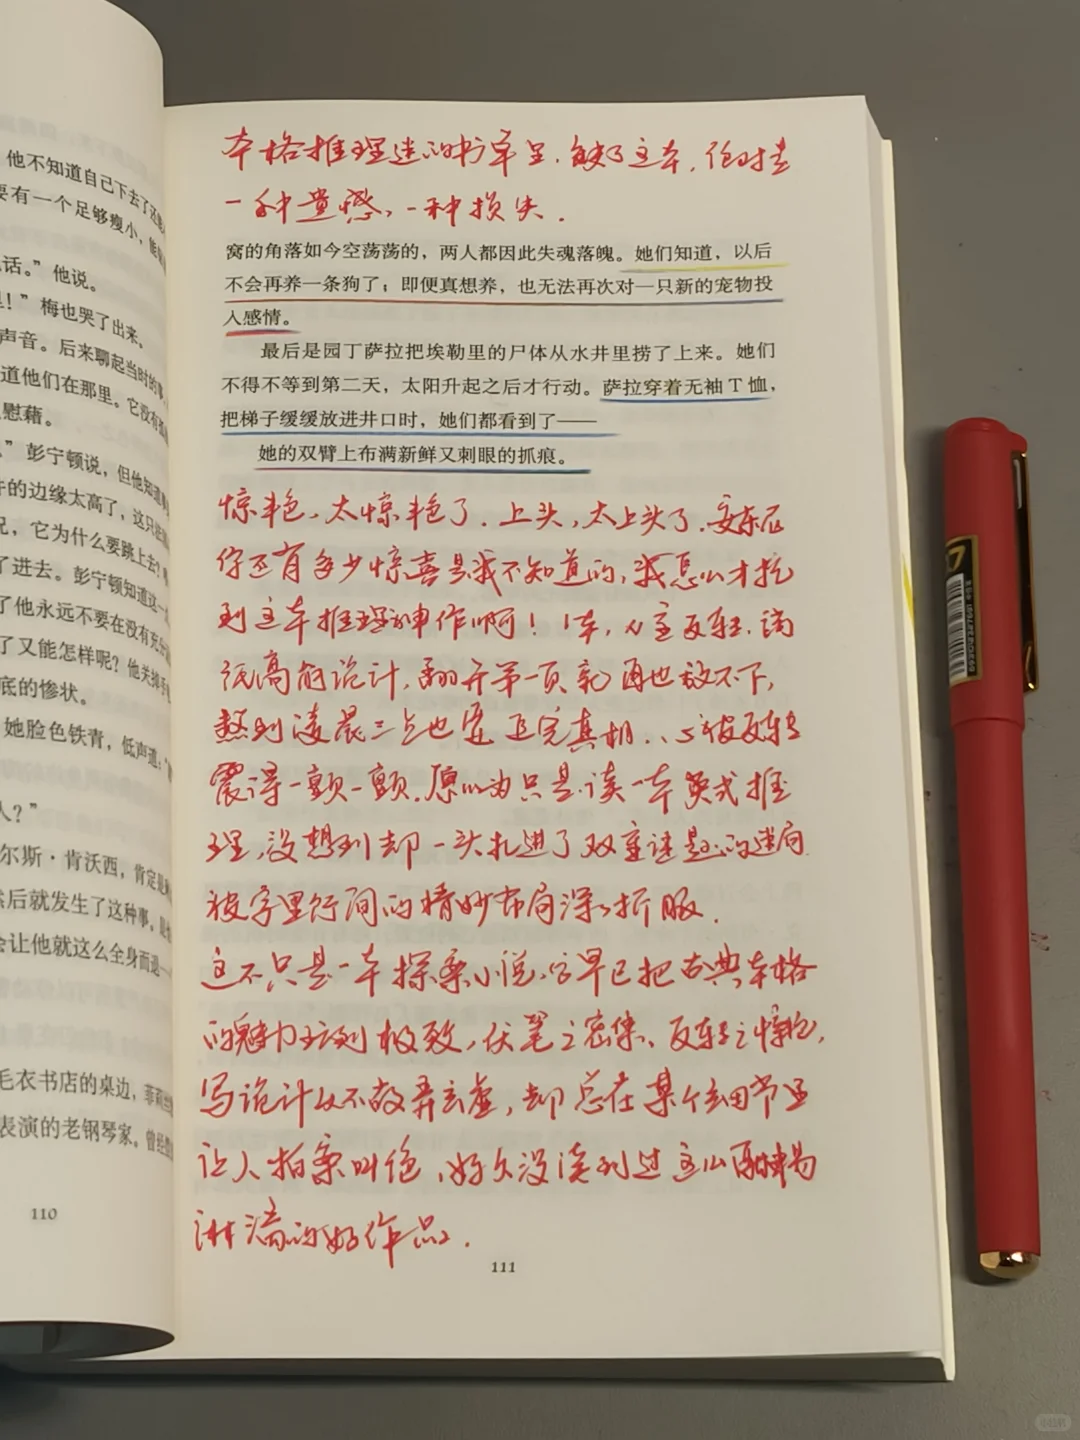 他不知道自己下去了还能
要有一个足够瘦小，能
话。”他说。
里！”梅也哭了出来。
声音。后来聊起当时的事
道他们在那里。它没有孤
慰藉。
”彭宁顿说，但他知道事
井的边缘太高了，这只
况，它为什么要跳上去？
了进去。彭宁顿知道这一
了他永远不要在没有充分
了又能怎样呢？他关掉手
底的惨状。
她脸色铁青，低声道：“
人？”
尔斯·肯沃西，肯定是
然后就发生了这种事。
会让他就这么全身而退
毛衣书店的桌边，菲莉丝
表演的老钢琴家。曾经
110
本格推理迷的书单里，缺了这本，绝对是
一种遗憾，一种损失．
窝的角落如今空荡荡的，两人都因此失魂落魄。她们知道，以后
不会再养一条狗了；即便真想养，也无法再次对一只新的宠物投
入感情。
最后是园丁萨拉把埃勒里的尸体从水井里捞了上来。她们
不得不等到第二天，太阳升起之后才行动。萨拉穿着无袖T恤，
把梯子缓缓放进井口时，她们都看到了——
她的双臂上布满新鲜又刺眼的抓痕。
惊艳，太惊艳了．上头，太上头了．安东尼
你还有多少惊喜是我不知道的，我怎么才挖
到这本推理神作啊！1本，N重反转，满
纸高能诡计，翻开第一页就再也放不下，
熬到凌晨三点也要追完真相，心被反转
震得一颤一颤．原以为只是读一本英式推
理，没想到却一头扎进了双重谜题的迷局
被字里行间的精妙布局深深折服．
这不只是一本探案小说，它早已把古典本格
的魅力玩到极致，伏笔之密集、反转之惊艳，
写诡计从不故弄玄虚，却总在某个细节里
让人拍案叫绝，好久没读到过这么酣畅
淋漓的好作品．
111
小红书